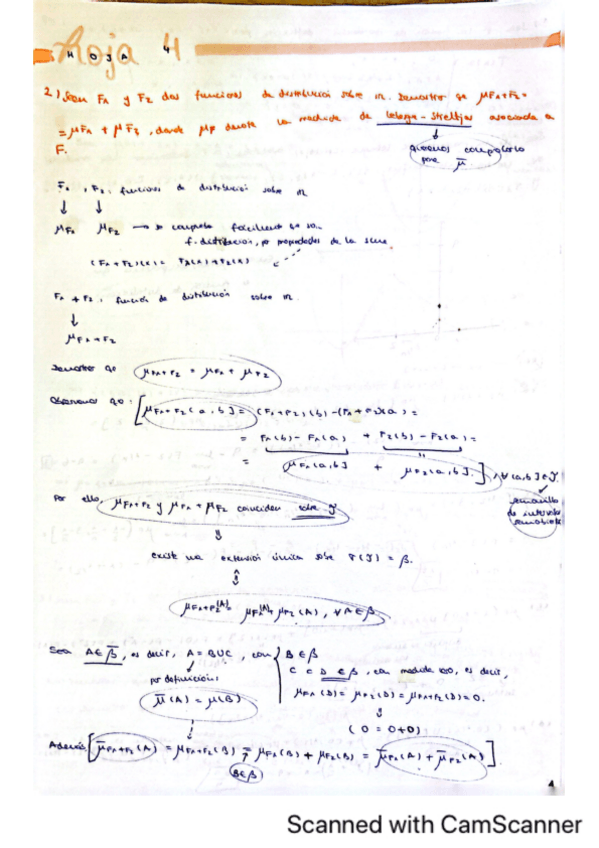 Hoja 4
HOJA
2) Sean F₁ y F₂ dos funciones de distribución sobre ℝ. Demostrar que μF₁+F₂ =
= μF₁ + μF₂, donde μF denota la medida de Lebesgue-Stieltjes asociada a
F.
para μ̄.
F₁, F₂: funciones de distribución sobre ℝ
↓ ↓
μF₁ μF₂ → se comprueba fácilmente que son
f. distribución, por propiedades de la suma
(F₁+F₂)(x) = F₁(x)+F₂(x)
F₁ + F₂: función de distribución sobre ℝ
↓
μF₁+F₂
Demostrar que μF₁+F₂ = μF₁ + μF₂
Observamos que: [μF₁+F₂(a,b] = (F₁+F₂)(b) - (F₁+F₂)(a) =
= F₁(b) - F₁(a) + F₂(b) - F₂(a) =
= μF₁(a,b] + μF₂(a,b].], ∀(a,b] ∈ J.
semianillo
de intervalos
semiabiertos
Por ello, μF₁+F₂ y μF₁ + μF₂ coinciden sobre J
⇓
existe una extensión única sobre σ(J) = β.
⇕
μF₁+F₂(A) = μF₁(A) + μF₂(A), ∀A∈β
Sea A∈β̄, es decir, A = B∪C, con { B∈β
C ⊂ D ∈ β, con medida cero, es decir,
por definición:
μF₁(D) = μF₂(D) = μF₁+F₂(D) = 0.
μ̄(A) = μ(B)
⇓
(0 = 0+0)
Además [μ̄F₁+F₂(A) = μF₁+F₂(B) = μF₁(B) + μF₂(B) = μ̄F₁(A) + μ̄F₂(A)].
B∈β
1
Scanned with CamScanner